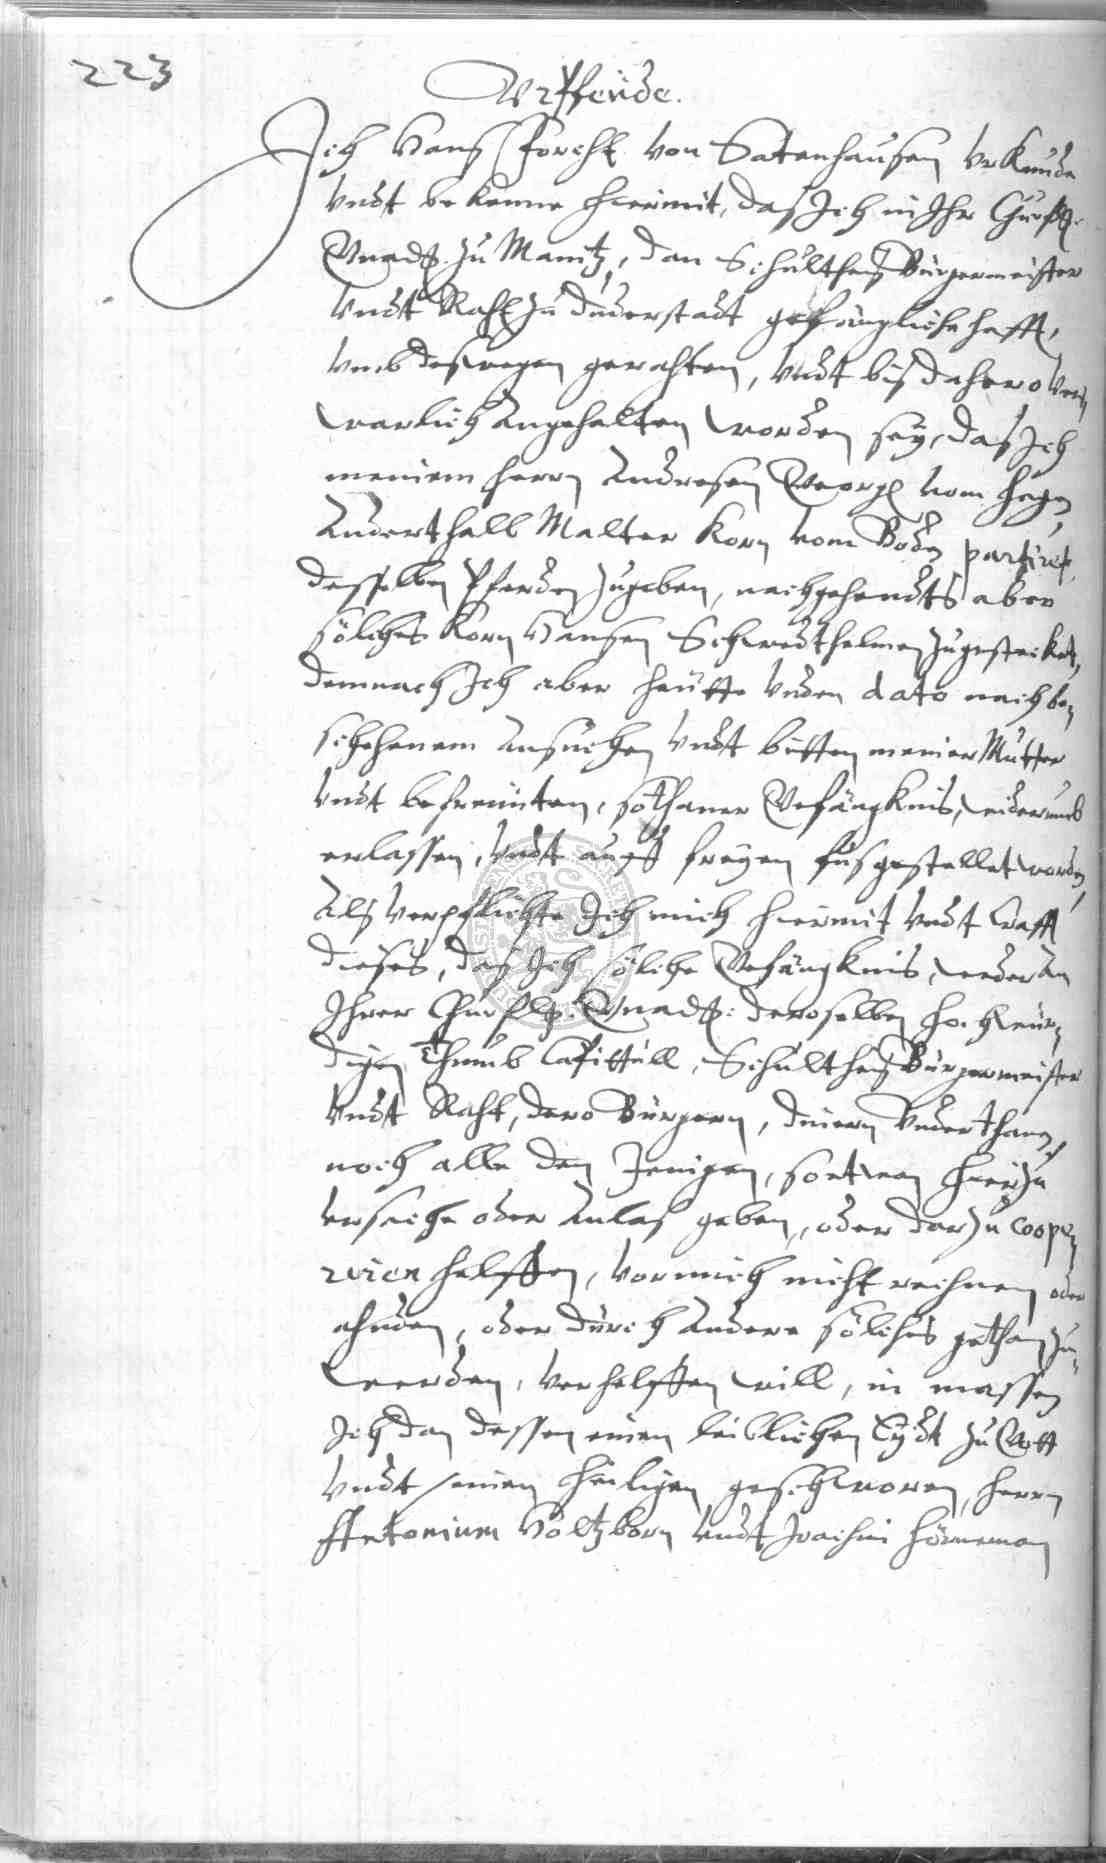 223
Vrpfeide.
Ich Hans Forcht von Satenhausen Vrkunde
Vndt bekenne hiermit, das Ich in Ihr Churfl.
Gnad. zu Maintz, dan Schultheis Bürgermeister
Vndt Raht zu Duderstadt gefängliche hafft,
Vmb deswegen gerahten, Vndt bis dahero Ver
warlich Angehalten worden sey, das Ich
meinem herrn Andresen Georg vom Hagen
Anderthalb Malter Korn vom Boden partiret,
desselben Pferden zugeben, nachgehendts aber
solches Korn Hansen zugestecket,
demnach Ich aber heutte Vnden dato nach be,
schehenem Ansuchen Vndt bitten meiner Mutter
Vndt befreunten, sothaner Gefängknis, widerumb
erlassen, Vndt auff freyen fus gestellet worden,
Als Verpflichte Ich mich hiermit Vndt Crafft
dieses, das Ich solche Gefängknis, weder An
Ihrer Churfl. Gnad: deroselben hochwür,
digen Thumb Capittull, Schultheis Bürgermeister
Vndt Raht, dero Bürgern, dienern Vnderthanen,
noch alle den Jenigen, so etwan hierzu
Vrsache oder Anlas geben, oder darzu coope,
riren helffen, vor mich nicht rechnen oder
ahnden, oder durch Andere solches gethan zu,
werden, verhelffen will, in massen
Ich dan dessen einen leiblichen Eydt zu Gott
Vndt seinen heiligen geschworen, herrn
Antonium Völtzborn Vndt Joachim Hörneman